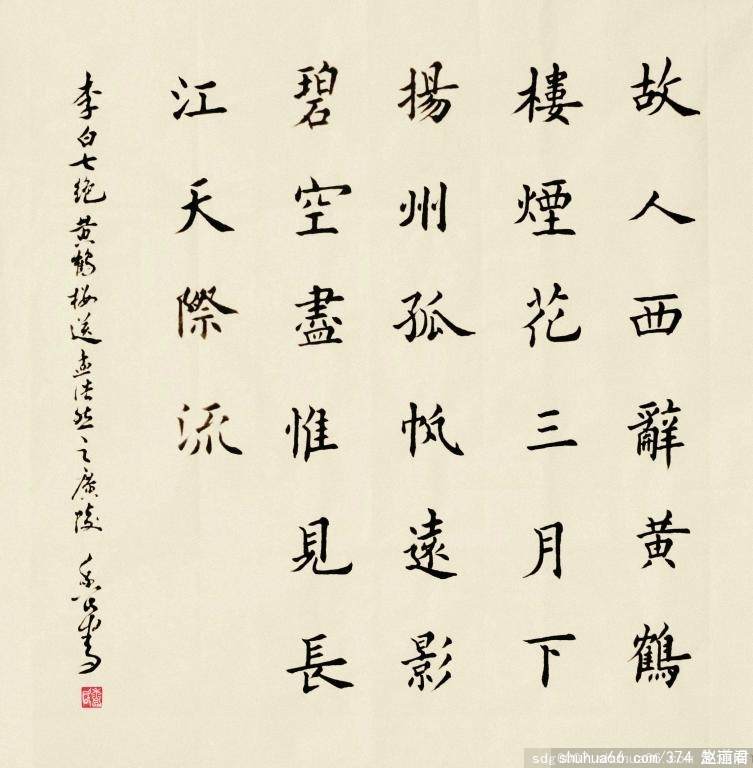 故人西辭黃鶴
樓煙花三月下
揚州孤帆遠影
碧空盡惟見長
江天際流
李白七絕黃鶴樓送孟浩然之廣陵
shuhua66 com/374